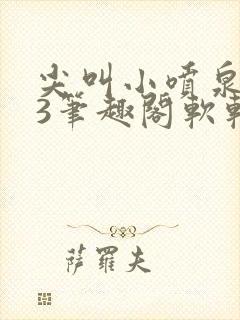 尖叫小喷泉
3笔趣阁软
萨罗夫